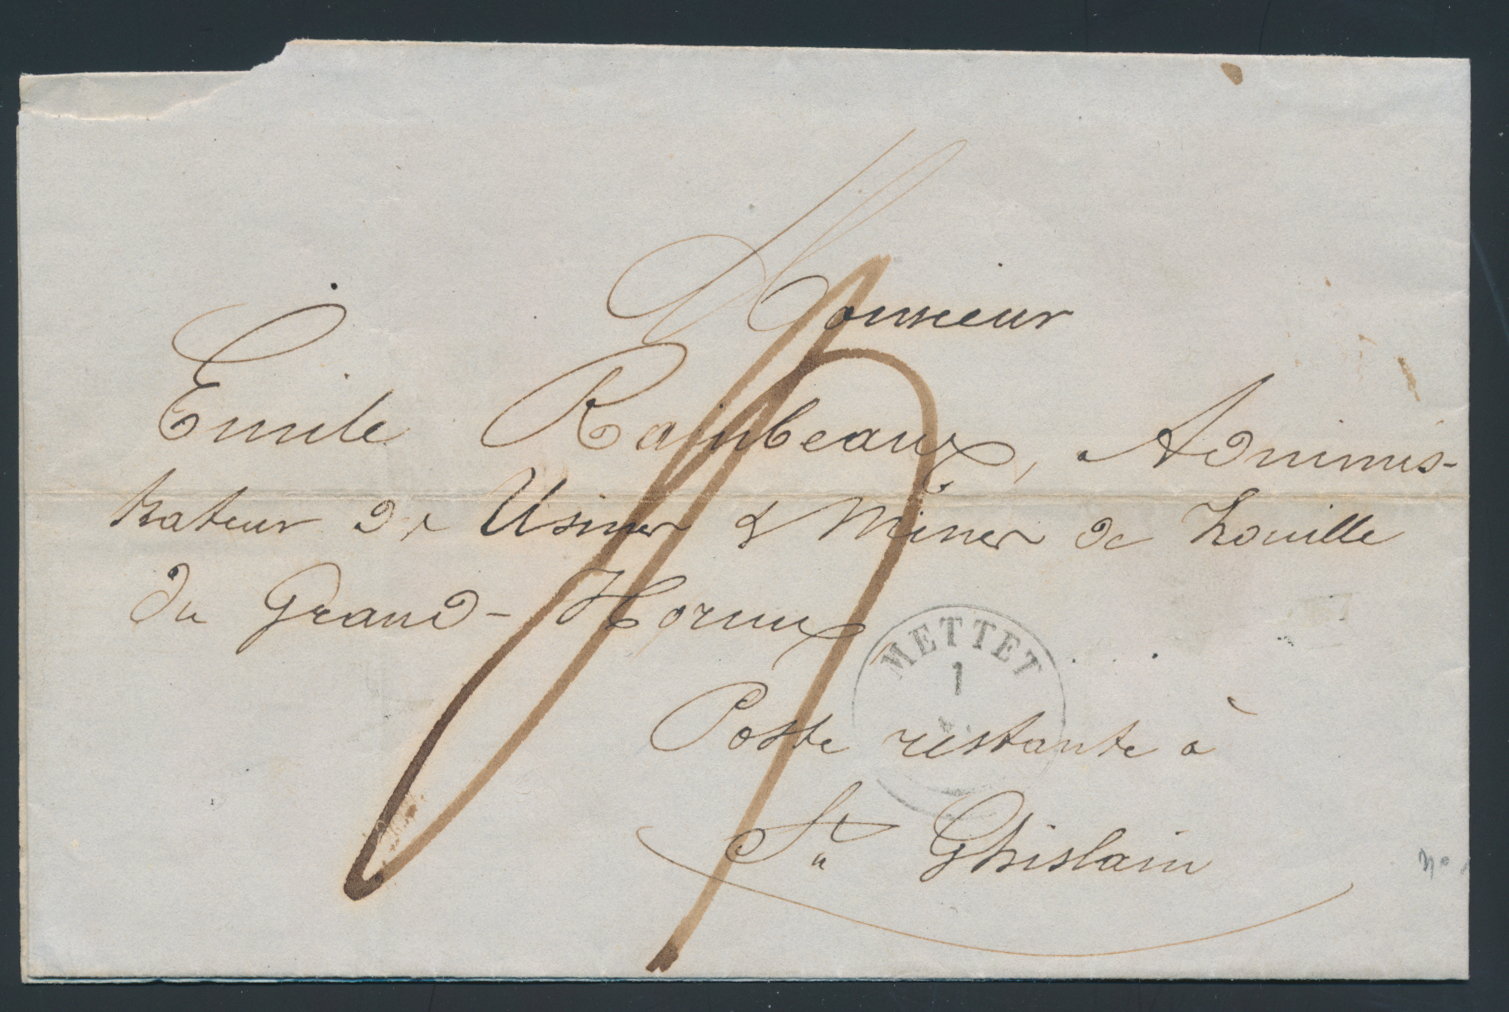 Monsieur
Emile Rainbeaux, Adminis-
trateur de Usines & Mines de houille
du Grand-Hornu
METTET
1
Poste restante à
St Ghislain